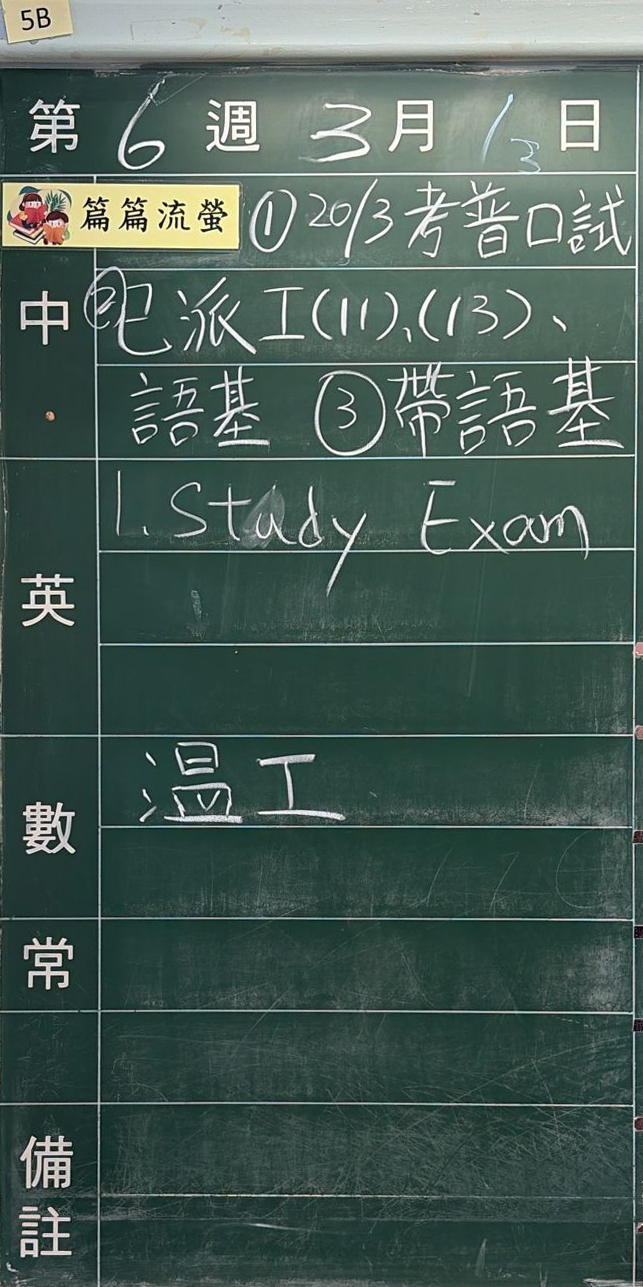 5B
第 6 週 3 月 13 日
篇篇流螢 ①20/3考普口試
中 ②已派工(11)、(13)、
語基 ③帶語基
英 1. Study Exam
數 温工
常
備註